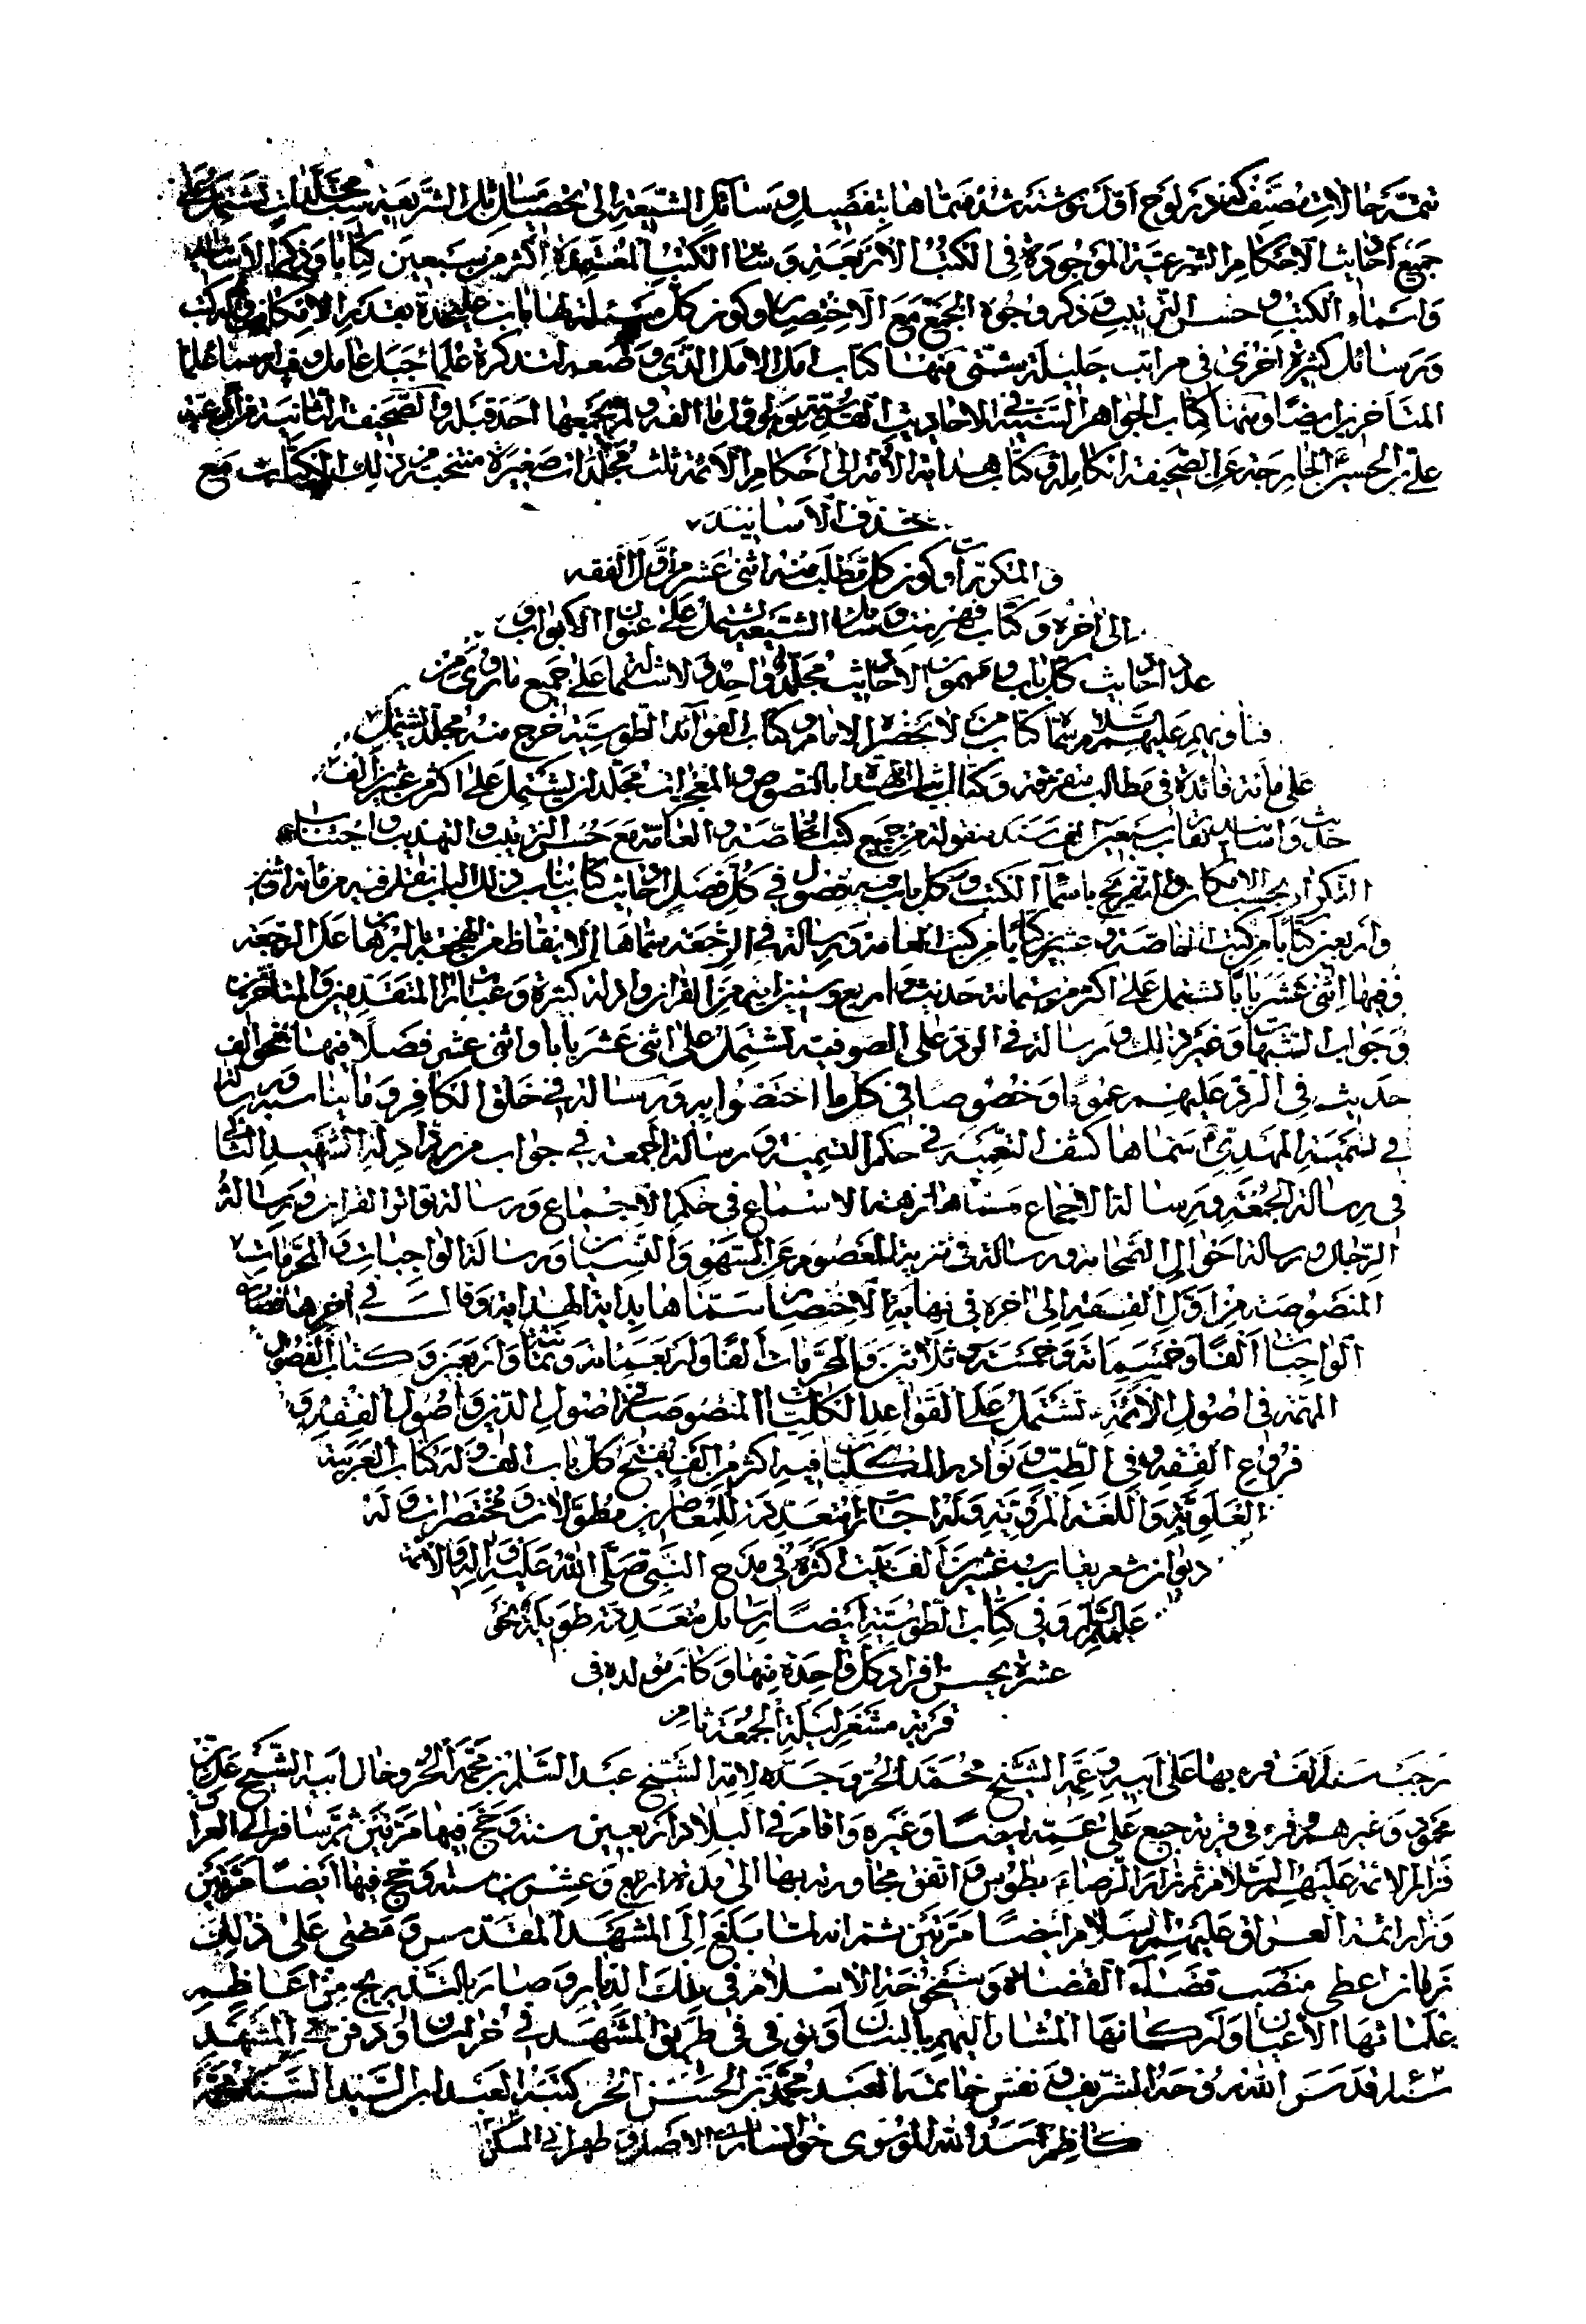 تتمة حالات مصنف که در لوح اول نوشته شد سماها بتفصيل وسائل الشيعة الى تحصيل مسائل الشريعة ست مجلدات تشتمل على
جميع احاديث الاحكام الشرعية الموجودة في الكتب الاربعة وسائر الكتب المعتمدة اكثر من سبعين كتابا وذكر الاسانيد
واسماء الكتب وحسن الترتيب وذكر وجوه الجمع مع الاختصار وكون كل مسئلة لها باب على حدة بقدر الامكان
ورسائل كثيرة اخرى في مراتب جليلة شتى منها كتاب امل الامل الذى وضعه لتذكرة علماء جبل عامل وفيه اسماء علمائنا
المتاخرين ايضا ومنها كتاب الجواهر السنية في الاحاديث القدسية وهو اول ما الفه ولم يجمعها احد قبله والصحيفة الثانية من ادعية
علي بن الحسين الخارجة عن الصحيفة الكاملة وكتاب هداية الامة الى احكام الائمة ثلث مجلدات صغيرة منتخبة من ذلك الكتاب مع
حذف الاسانيد
والمكررات وكون كل مطلب منه اثنى عشر من اول الفقه
الى اخره وكتاب فهرست وسائل الشيعة يشتمل على عنوان الابواب و
عدد احاديث كل باب ومضمون الاحاديث مجلد واحد ولاشتماله على جميع ما روى من
فتاويهم عليهم السلام سماه كتاب من لا يحضره الامام وكتاب الفوائد الطوسية خرج منه مجلد يشتمل
على مائة فائدة في مطالب متفرقة وكتاب اثبات الهداة بالنصوص والمعجزات مجلدان يشتمل على اكثر من عشرين الف
حديث واسانيد تقارب سبعين الف سند منقولة من جميع كتب الخاصة والعامة مع حسن الترتيب والتهذيب واجتناب
التكرار بحسب الامكان والتصريح باسماء الكتب وكل باب فيه فصول في كل فصل احاديث كتاب يناسب ذلك الباب نقل فيه من مائة واثنين
واربعين كتابا من كتب الخاصة وعشرين كتابا من كتب العامة ورسالة في الرجعة سماها الايقاظ من الهجعة بالبرهان على الرجعة
وفيها اثنى عشر بابا تشتمل على اكثر من ستمائة حديث واربع وستين اية من القران وادلة كثيرة وعبارات المتقدمين والمتاخرين
وجواب الشبهات وغير ذلك ورسالة في الرد على الصوفية تشتمل على اثنى عشر بابا واثنى عشر فصلا فيها نحو الف
حديث في الرد عليهم عموما وخصوصا في كل ما اختصوا به ورسالة في خلق الكافر وما يناسبه ورسالة
في تسمية المهدي سماها كشف التعمية في حكم التسمية ورسالة الجمعة في جواب من رد ادلة الشهيد الثاني
في رسالة الجمعة ورسالة الاجماع سماها نزهة الاسماع في حكم الاجماع ورسالة تواتر القران ورسالة
الرجال ورسالة احوال الصحابة ورسالة في تنزيه المعصوم عن السهو والنسيان ورسالة الواجبات والمحرمات
المنصوصة من اول الفقه الى اخره في نهاية الاختصار سماها بداية الهداية وقال في اخرها فصارت
الواجبات الفا وخمسمائة وخمسة وثلاثين والمحرمات الفا واربعمائة وثمانا واربعين وكتاب الفصول
المهمة في اصول الائمة تشتمل على القواعد الكليات المنصوصة في اصول الدين واصول الفقه و
فروع الفقه وفي الطب ونوادر الكليات فيه اكثر من الف يفتح كل باب الف وله كتاب العربية
العلوية واللغة المروية وله اجازات متعددة للمعاصرين مطولات ومختصرات وله
ديوان شعر يقارب عشرين الف بيت اكثره في مدح النبي صلى الله عليه واله والائمة
عليهم السلام وفي كتاب الطوسية ايضا رسائل متعددة طويلة نحو
عشرة يحسن افراد كل واحدة منها وكان مولده في
قرية مشغر ليلة الجمعة ثامن
رجب سنة الف قرء بها على ابيه وعمه الشيخ محمد الحر وجده لامه الشيخ عبد السلام بن محمد الحر وخال ابيه الشيخ على بن
محمود وغيرهم وقرء في قرية جبع على عمه ايضا وغيره واقام في البلاد اربعين سنة وحج فيها مرتين ثم سافر الى العراق
فزار الائمة عليهم السلام ثم زار الرضا بطوس واتفق مجاورته بها الى مدة اربع وعشرين سنة وحج فيها ايضا مرتين
وزار ائمة العراق عليهم السلام ايضا مرتين ثم انه لما بلغ الى المشهد المقدس ومضى على ذلك
زمان اعطى منصب قضاء القضاة وشيخوخة الاسلام في تلك الديار وصار بالتدريج من اعاظم
علمائها الاعيان واركانها المشار اليهم بالبنان وتوفى في طريق المشهد في خراسان ودفن في المشهد
قدس الله روحه الشريف نقش خاتمه العبد محمد بن الحسن الحر كتبه العبد ابن السيد السند محمد
كاظم اسد الله الموسوى خوانسارى الاصل وطهرانى المسكن